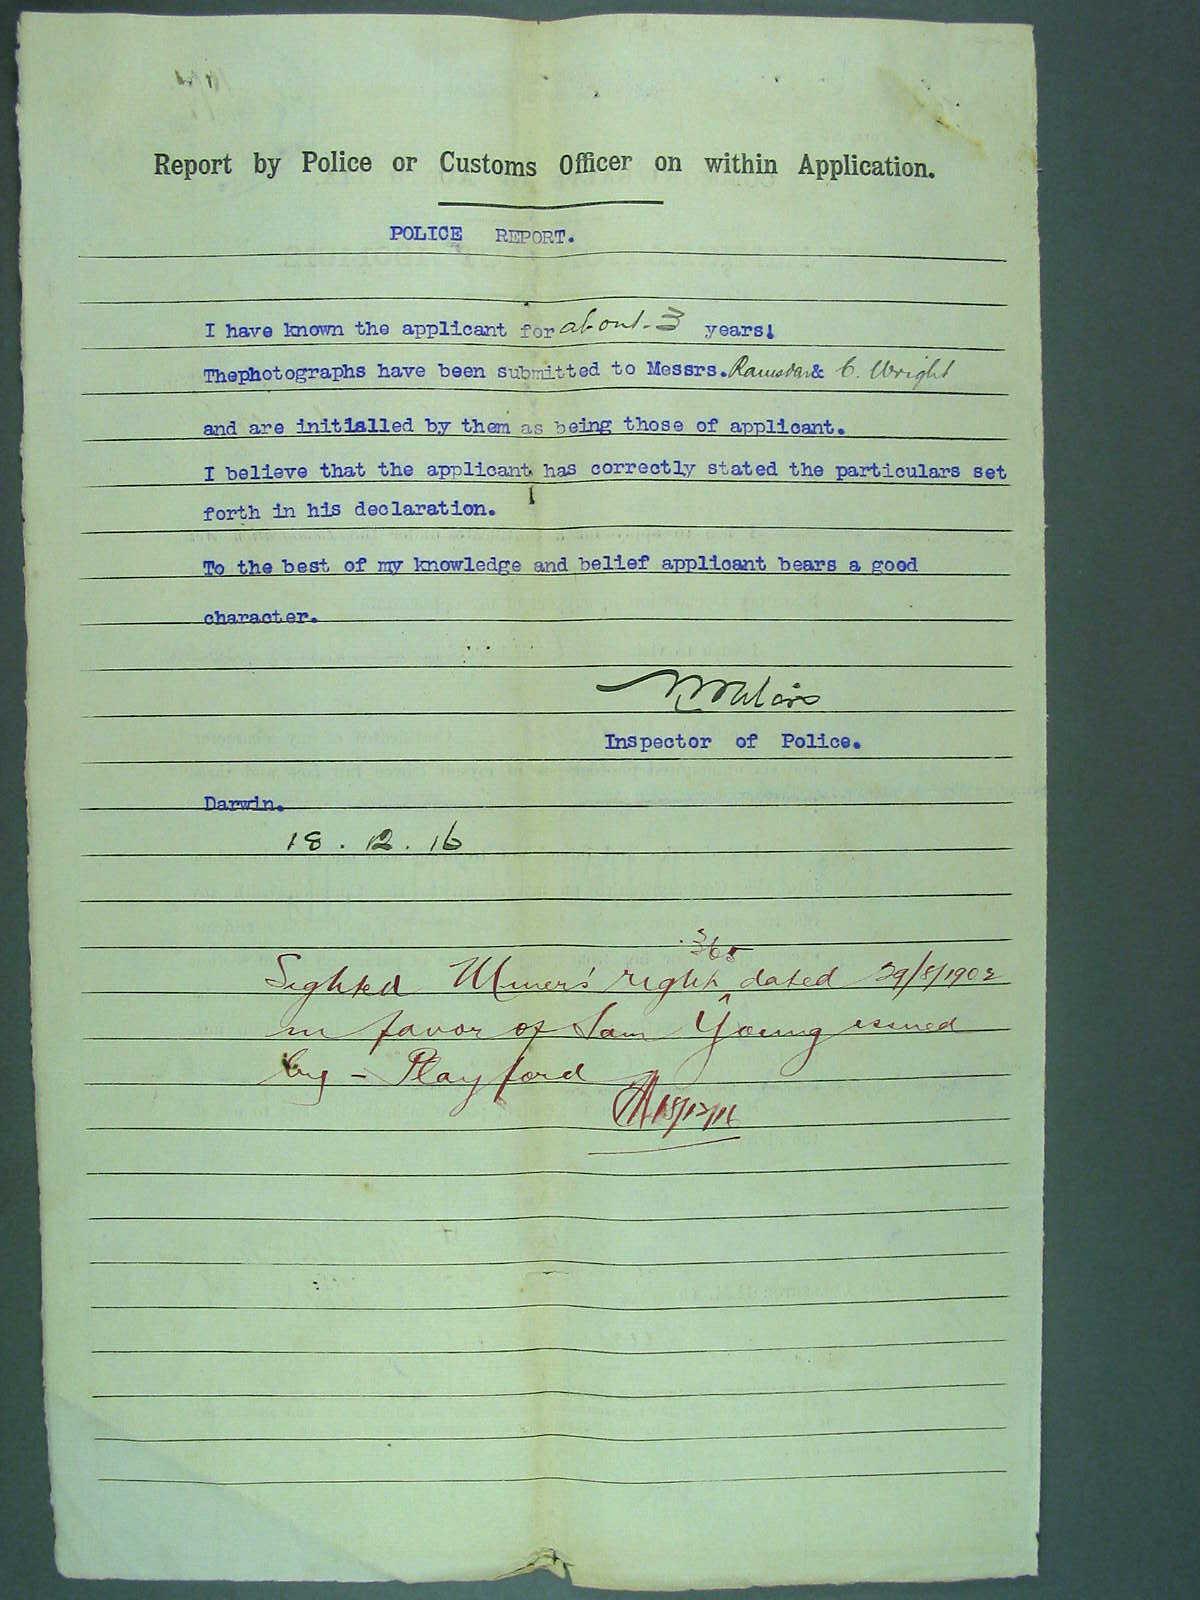 Report by Police or Customs Officer on within Application.
POLICE REPORT.
I have known the applicant for about 3 years!
Thephotographs have been submitted to Messrs. & C. Wright
and are initialled by them as being those of applicant.
I believe that the applicant has correctly stated the particulars set
forth in his declaration.
To the best of my knowledge and belief applicant bears a good
character.
Inspector of Police.
Darwin.
18.12.16
365
Sighted Miner's right ^ dated 29/8/1902
in favor of Sam Young issued
by - Playford
18/12/16